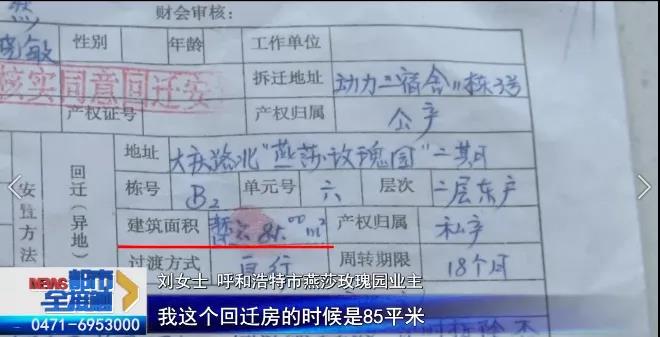 财会审核：
晓敏 性别 年龄 工作单位
核实同意回迁安
拆迁地址 动力二宿舍11栋3号
产权证号 产权归属 公产
安置方法 回迁（异地）
地址 大庆路北“燕莎·玫瑰园”二期
栋号 B2 单元号 六 层次 二层东户
建筑面积 暂定85.00m² 产权归属 私产
过渡方式 自行 周转期限 18个月
刘女士 呼和浩特市燕莎玫瑰园业主
NEWS 都市全接触
0471-6953000
我这个回迁房的时候是85平米